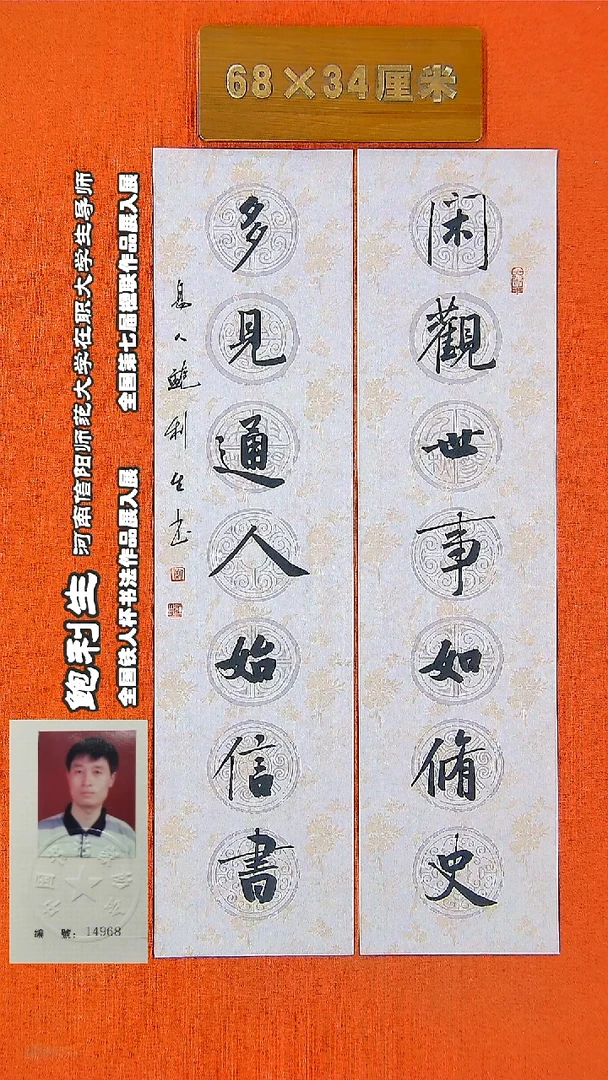 68×34厘米
闲觀世事如脩史
多見通人始信書
息人鮑利生书
鲍利生
河南信阳师范大学在职大学生导师
全国铁人杯书法作品展入展
全国第七届楹联作品展入展
编 號：14968